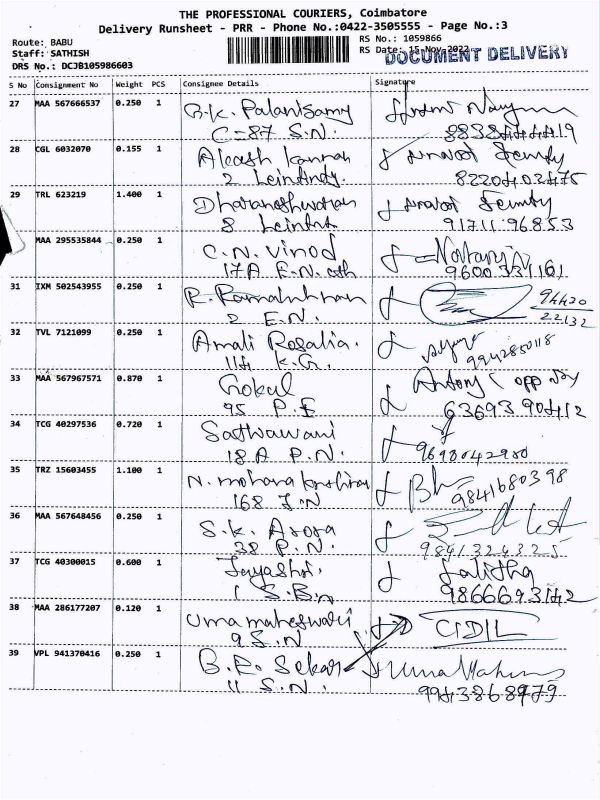 THE PROFESSIONAL COURIERS, Coimbatore
Delivery Runsheet - PRR - Phone No.:0422-3505555 - Page No.:3
Route: BABU
RS No.: 1059866
Staff: SATHISH
RS Date: 15-Nov-2022
DOCUMENT DELIVERY
DRS No.: DCJB105986603
S No Consignment No Weight PCS Consignee Details Signature
27 MAA 567666537 0.250 1 G.K. Palanisamy
C-87 S.N.
28 CGL 6032070 0.155 1 Akash kannan Security
2
29 TRL 623219 1.400 1 Dharaneshwaran Security
8 91711 96853
MAA 295535844 0.250 1 C.N. Vinod Nataraj
17A E.N. 9600331161
31 IXM 502543955 0.250 1 R. 94420
2 E.N. 22132
32 TVL 7121099 0.250 1 Amali Rosalia.
114 K.G. 9942850118
33 MAA 567967571 0.870 1 Gokul Antony ( opp
95 P.E 6369390412
34 TCG 40297536 0.720 1
18A P.N. 9698042980
35 TRZ 15603455 1.100 1 N.
168 9841680398
36 MAA 567648456 0.250 1 S.K. Arora
38 P.N. 9841324325
37 TCG 40300015 0.600 1 Jayashri. Lalitha
1 S.B.N 9866693142
38 MAA 286177207 0.120 1 Umamaheswari CIDIL
9 S.N
39 VPL 941370416 0.250 1 B.R. Sekar
11 S.N. 9943868979